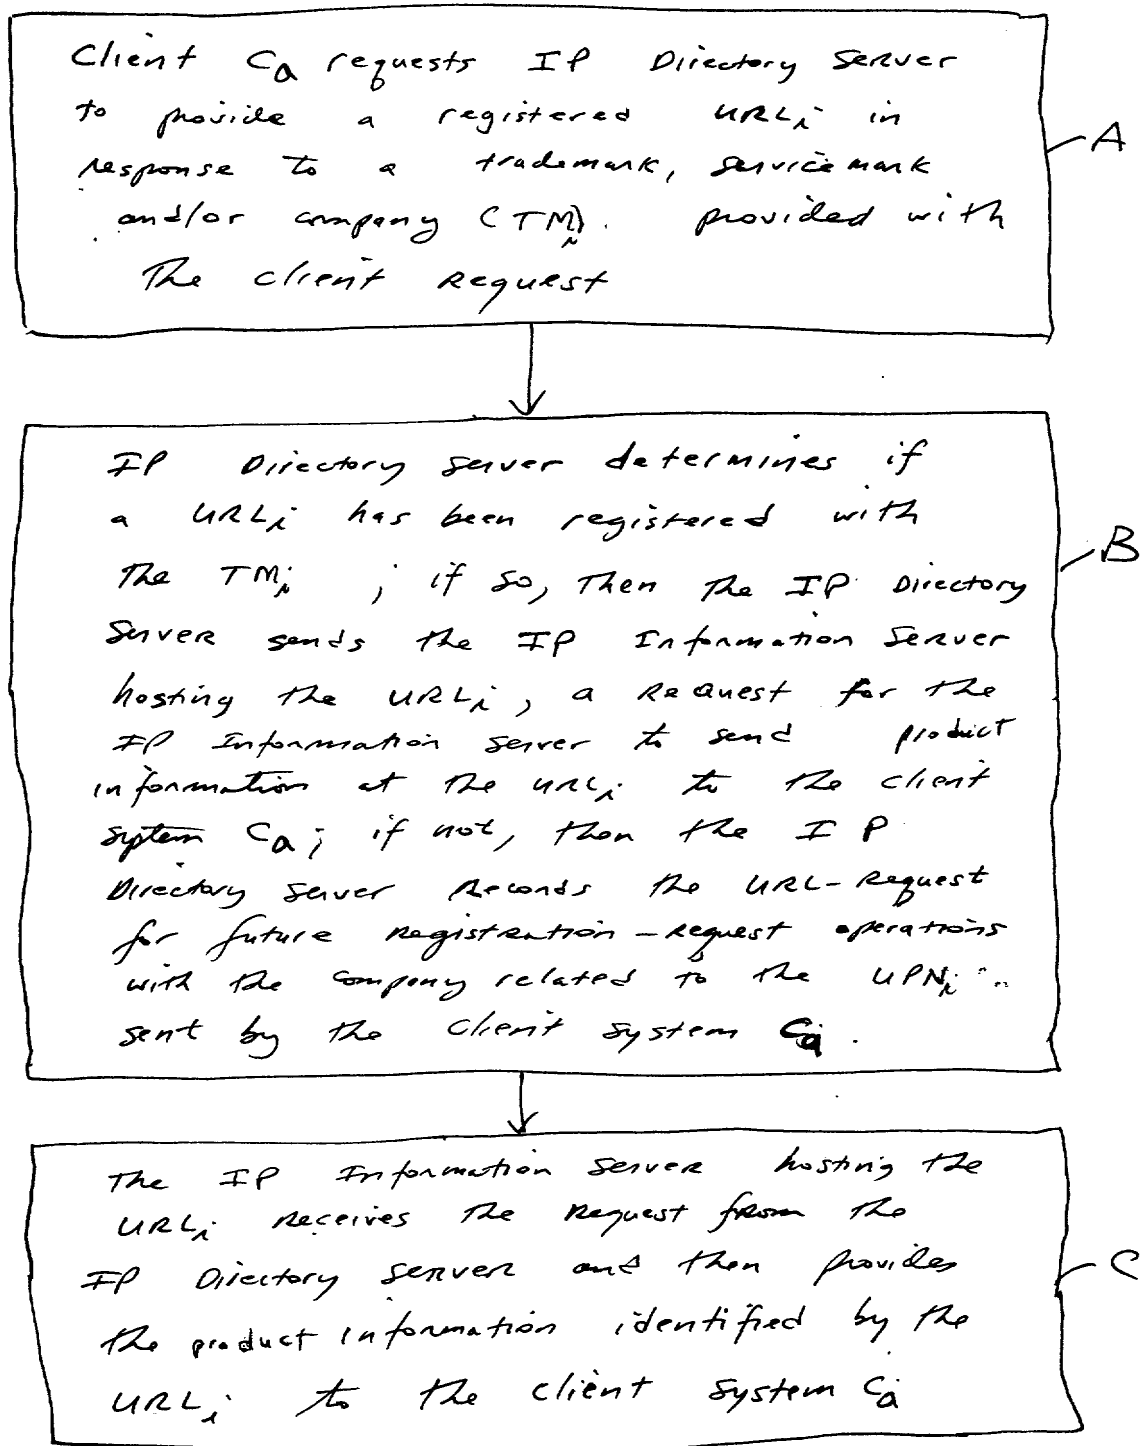 Client Ca requests IP Directory Server
to provide a registered URLi in
response to a trademark, servicemark
and/or company (TMi). provided with
The client request
A
IP Directory Server determines if
a URLi has been registered with
the TMi ; if so, then the IP Directory
Server sends the IP Information Server
hosting the URLi, a request for the
IP Information Server to send product
information at the URLi to the client
system Ca; if not, then the IP
Directory Server records the URL-request
for future registration-request operations
with the company related to the UPNi
sent by the client system Ca.
B
The IP Information Server hosting the
URLi receives the request from the
IP Directory Server and then provides
the product information identified by the
URLi to the client system Ca
C